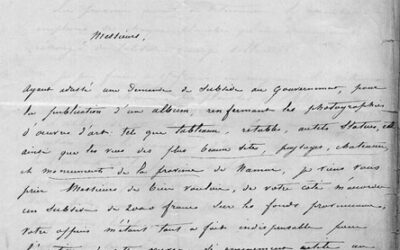 Messieurs,
Ayant adressé une demande de subside au Gouvernement, pour
la publication d'un album, renfermant les photographies
d'œuvres d'art, tel que tableaux, rétables, autels, statues, etc.
ainsi que les vues des plus beaux sites, paysages, châteaux,
et monuments de la province de Namur, je viens vous
prier Messieurs de bien vouloir, de votre côté m'accorder
un subside de francs sur les fonds provinciaux,
votre appui m'étant tout à fait indispensable pour